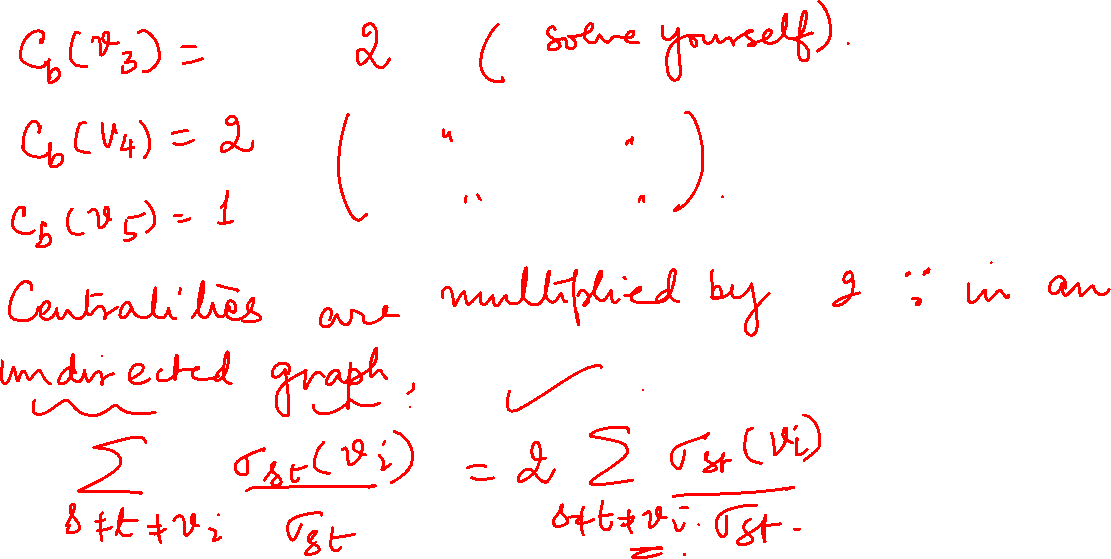 C_b(v_3) = 2 (solve yourself).
C_b(v_4) = 2 ( " " )
C_b(v_5) = 1 ( " " ).
Centralities are multiplied by 2 ∵ in an
undirected graph, ✓
∑_{s≠t≠v_i} σ_st(v_i)/σ_st = 2 ∑_{s≠t≠v_i} σ_st(v_i)/σ_st.